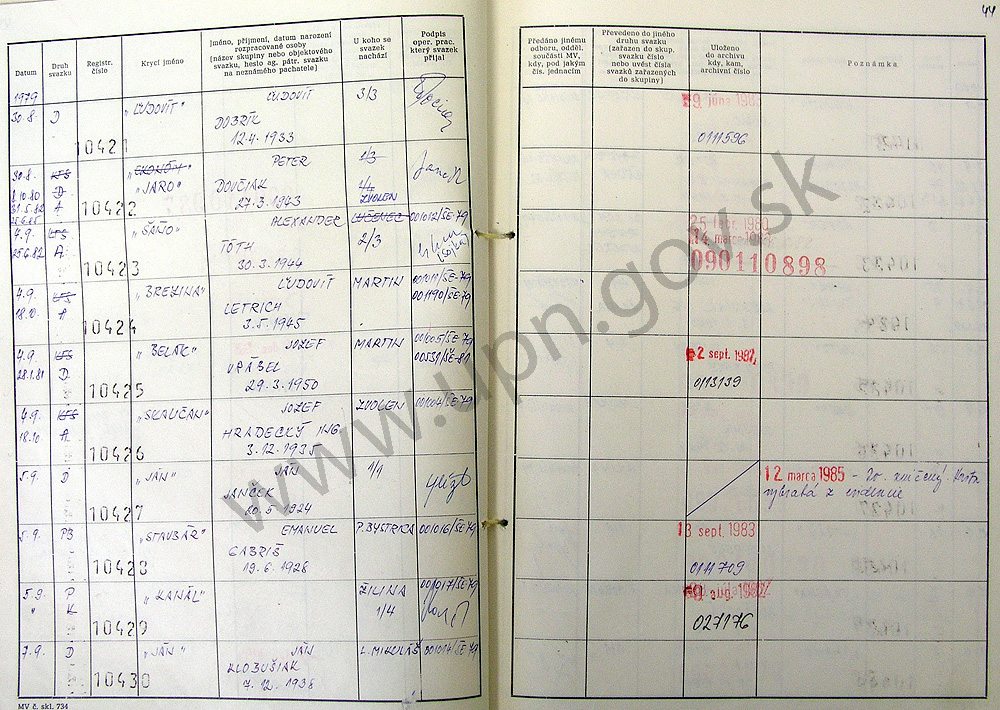 44
Datum
Druh svazku
Registr. číslo
Krycí jméno
Jméno, příjmení, datum narození
rozpracované osoby
(název skupiny nebo objektového
svazku, heslo ag. pátr. svazku
na neznámého pachatele)
U koho se
svazek
nachází
Podpis
oper. prac.
který svazek
přijal
Předáno jinému
odboru, odděl.
součásti MV,
kdy, pod jakým
čís. jednacím
Převedeno do jiného
druhu svazku
(zařazen do skup.
svazku
nebo uvést čísla
svazků zařazených
do skupiny)
Uloženo
do archivu
kdy, kam,
archivní číslo
Poznámka
1979
30.8. D 10421 "ĽUDOVÍT" ĽUDOVÍT 3/3
DOBRÍK
12.4.1933
9. júna 1983
0111596
30.8. KTS 10422 "EKONÓM" PETER 1/3
8.10.80 D "JARO" DOVČIAK 1/4
31.5.82 A 27.3.1943 ZVOLEN
4.9. KTS 10423 "ŠAŇO" ALEXANDER LUČENEC 001012/ŠE-79
25.6.82 A TÓTH 2/3
30.3.1944
25 febr. 1980
14. marca
090110898
4.9. KTS 10424 "BREZINA" ĽUDOVÍT MARTIN 001011/ŠE-79
18.10. A LETRICH 001190/ŠE-79
3.5.1945
4.9. KTS 10425 JOZEF MARTIN 001005/ŠE-79
28.1.81 D VRÁBEL 00531/ŠE-81
29.3.1950
2 sept. 1987
0113139
4.9. KTS 10426 "SKALIČAN" JOZEF ZVOLEN 001004/ŠE-79
18.10 A HRADECKÝ ING
3.12.1935
5.9. D 10427 "JÁN" JÁN 1/1
JANČEK
20.5.1924
12. marca 1985 - zničený
vybratá z evidencie
5.9. PB 10428 "STAVBÁR" EMANUEL P.BYSTRICA 001016/ŠE-79
GABRIŠ
19.6.1928
13 sept. 1983
0111709
5.9. P 10429 "KANÁL" ŽILINA 001017/ŠE-79
" K 1/4
aug. 198
027176
7.9. D 10430 "JÁN" JÁN L.MIKULÁŠ 001014/ŠE-79
KLOBUŠIAK
7.12.1938
MV č. skl. 734
www.upn.gov.sk